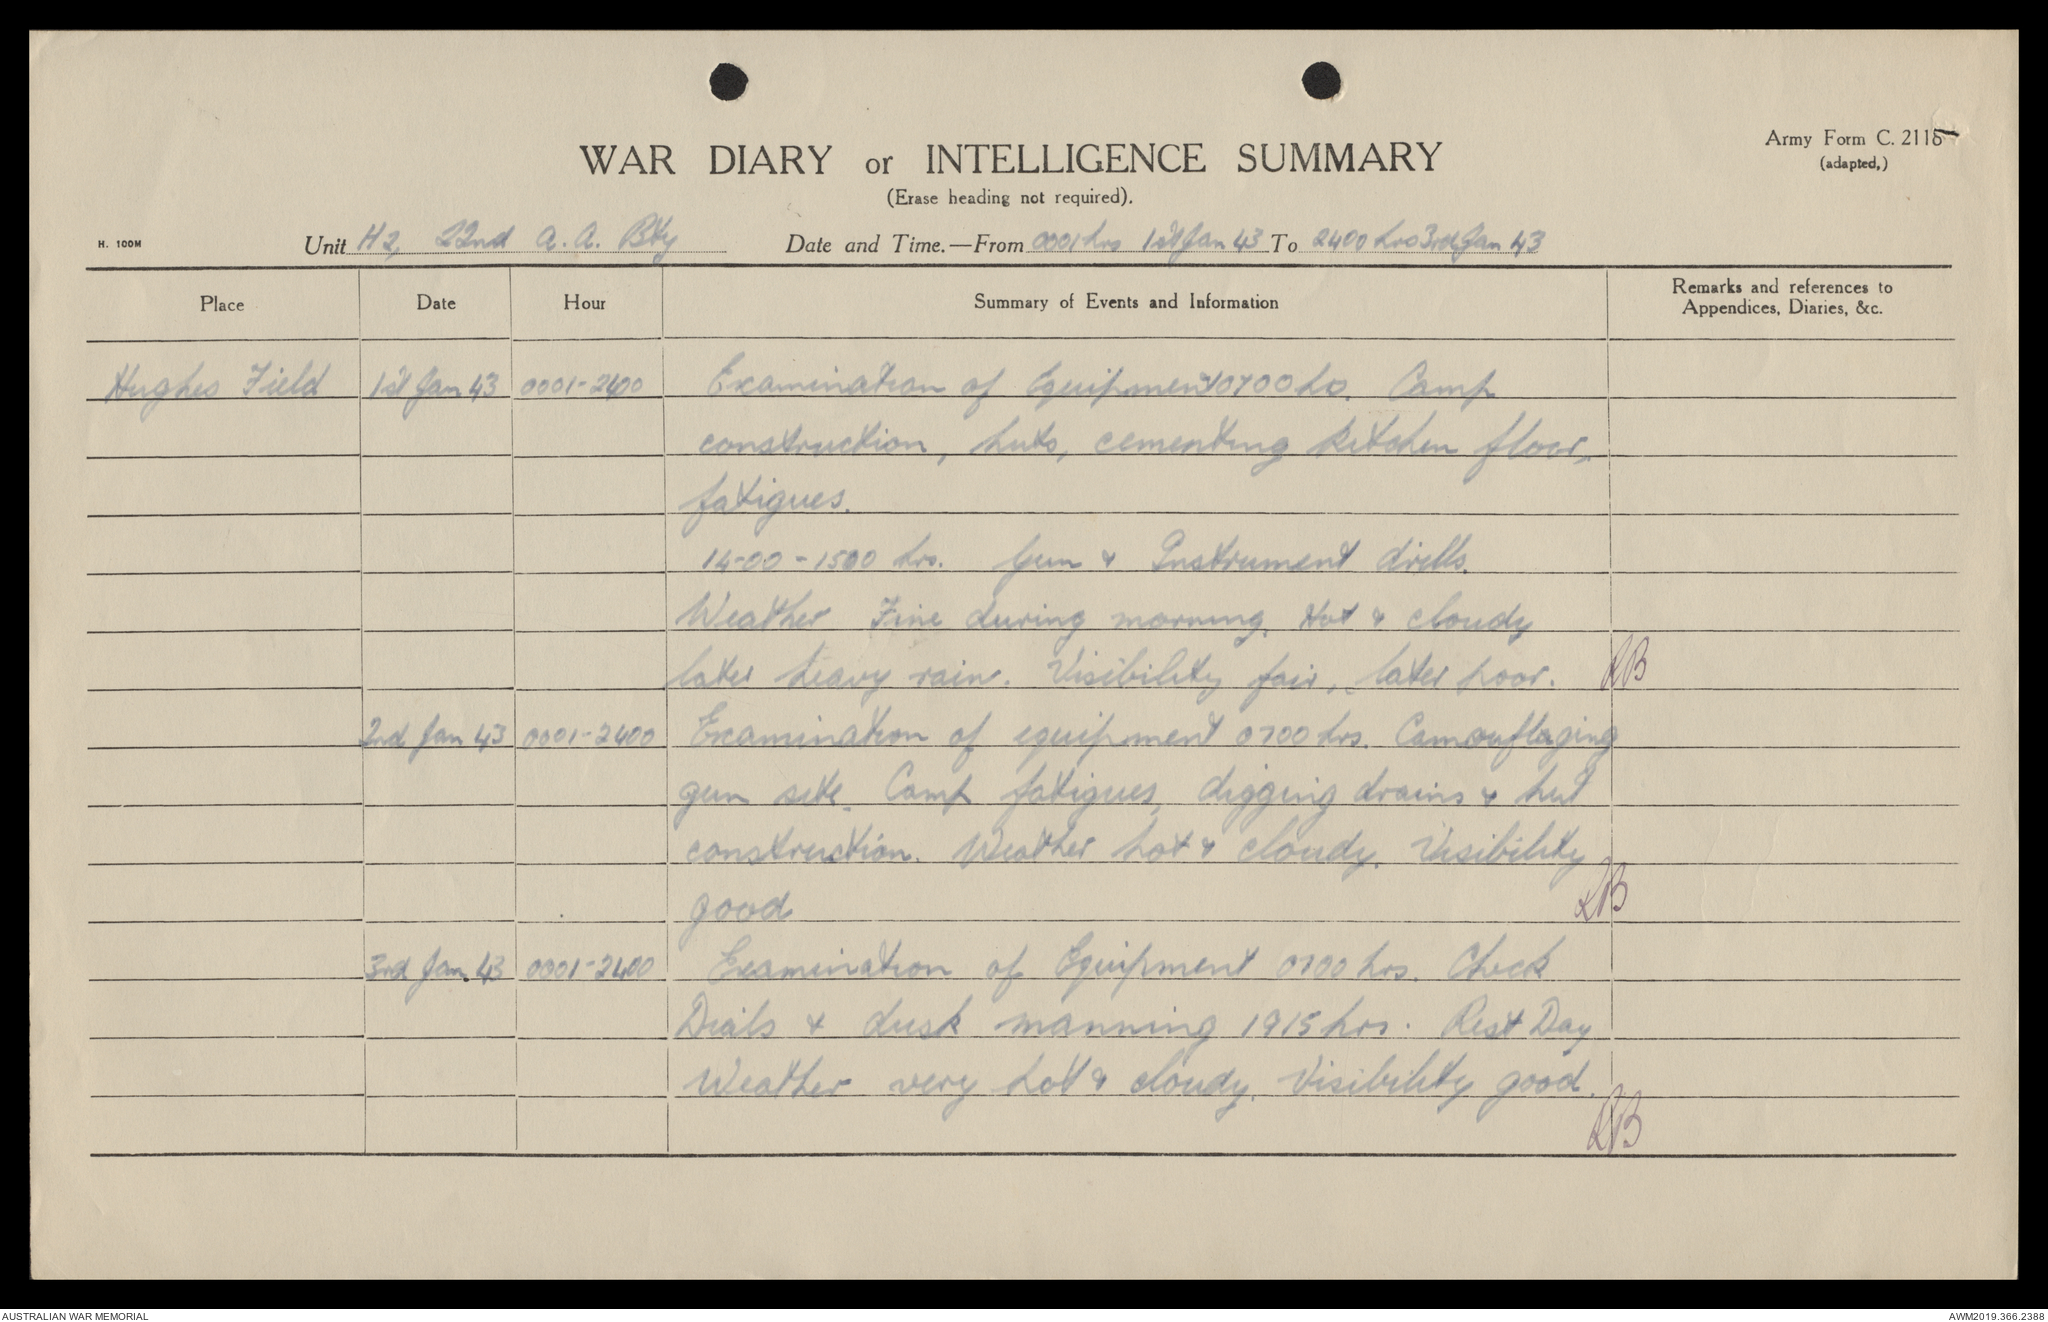 WAR DIARY or INTELLIGENCE SUMMARY
(Erase heading not required).
Army Form C. 2118
(adapted,)
H. 100M
Unit H2, 22nd A.A. Bty Date and Time.—From 0001 hrs 1st Jan 43 To 2400 hrs 3rd Jan 43
Place Date Hour Summary of Events and Information Remarks and references to
Appendices, Diaries, &c.
Hughes Field 1st Jan 43 0001-2400 Examination of Equipment 0700 hrs. Camp
construction, huts, cementing kitchen floor,
fatigues.
14-00-1500 hrs. Gun & Instrument drills.
Weather Fine during morning. Hot & cloudy
later heavy rain. Visibility fair, later poor. RB
2nd Jan 43 0001-2400 Examination of equipment 0700 hrs. Camouflaging
gun site. Camp fatigues, digging drains & hut
construction. Weather hot & cloudy. Visibility
good RB
3rd Jan. 43 0001-2400 Examination of Equipment 0700 hrs. Check
Dials & dusk manning 1915 hrs. Rest Day
Weather very hot & cloudy. Visibility good.
RB
AUSTRALIAN WAR MEMORIAL
AWM2019.366.2388